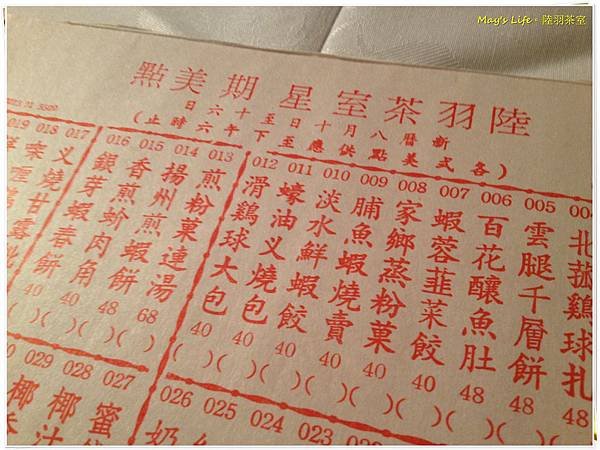 May's Life。陸羽茶室
陸羽茶室星期美點
新曆八月十日至十六日
(各式美點供應至下午六時止)
北菰鷄球扎 48 ( )
005 雲腿千層餅 48 ( )
006 百花釀魚肚 48 ( )
007 蝦蓉韮菜餃 40 ( )
008 家鄉蒸粉菓 40 ( )
009 脯魚蝦燒賣 40 ( )
010 淡水鮮蝦餃 40 ( )
011 蠔油义燒包 40 ( )
012 滑鷄球大包 40 ( )
013 煎粉菓連湯 68 ( )
014 揚州煎蝦餅 48 ( )
015 香煎蚧肉角 40 ( )
016 銀芽蝦春餅 40 ( )
017 义燒甘露
018
019
022
023
024
025
026 奶
027 蜜
028 椰汁
029 椰